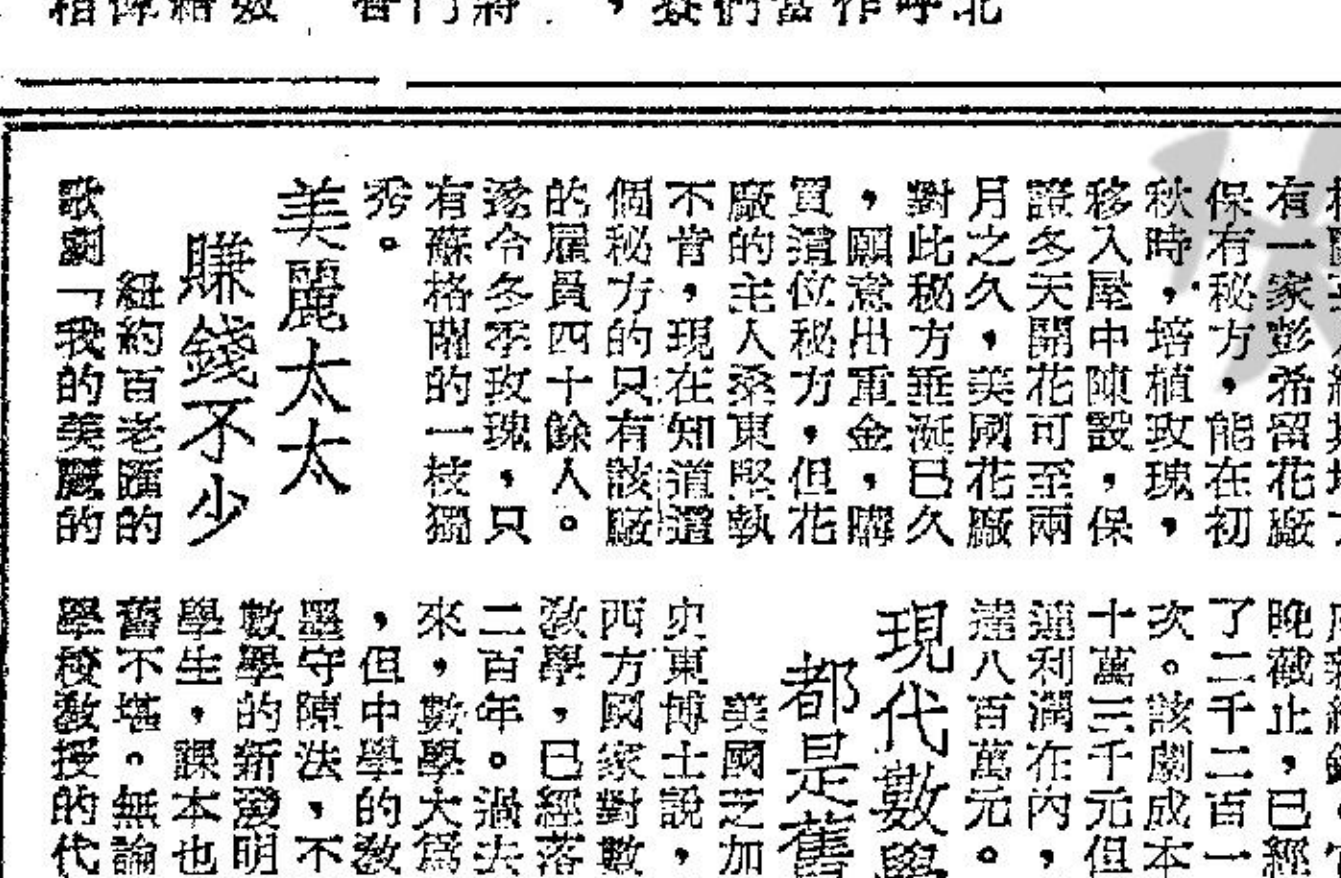 有一家彭希留花廠
保有秘方，能在初
秋時，培植玫瑰，
移入屋中陳設，保
證冬天開花可至兩
月之久，美國花廠
對此秘方垂涎已久
，願意出重金，購
買這位秘方，但花
廠的主人桑東堅執
不肯，現在知道這
個秘方的只有該廠
的雇員四十餘人。
遂令冬季玫瑰，只
有蘇格蘭的一枝獨
秀。
美麗太太
賺錢不少
紐約百老匯的
歌劇「我的美麗的
晚截止，已經
了二千二百一
次。該劇成本
十萬三千元但
連利潤在內，
達八百萬元。
現代數學
都是舊
美國芝加
史東博士說，
西方國家對數
教學，已經落
二百年。過去
來，數學大為
，但中學的教
墨守陳法，不
數學的新發明
學生，課本也
舊不堪。無論
學校教授的代